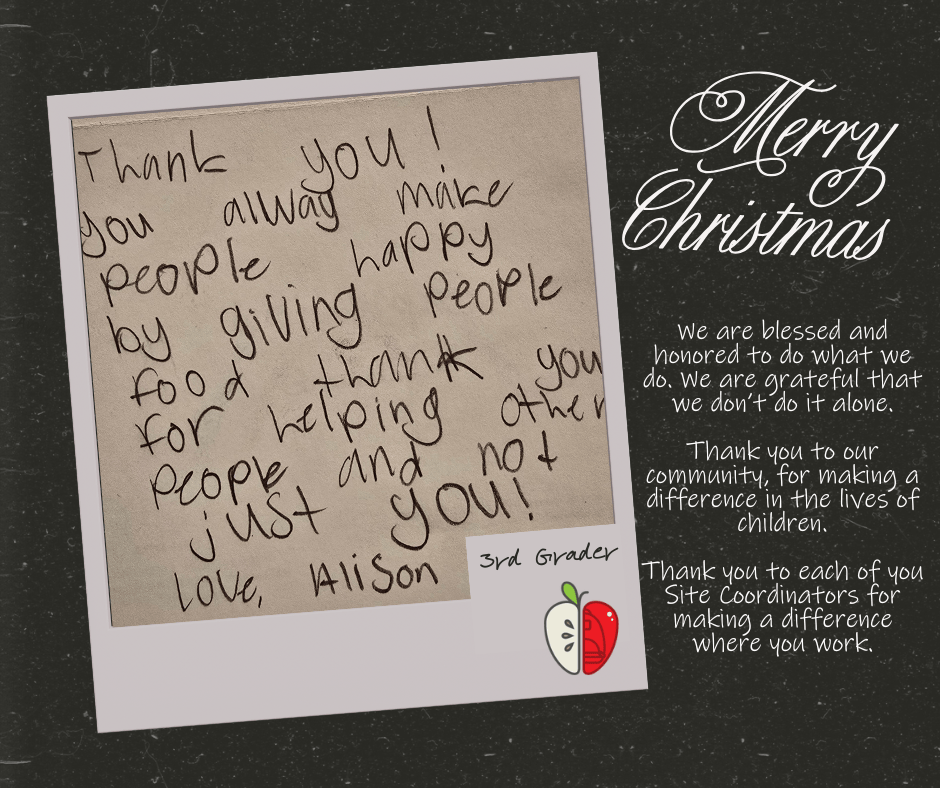 Thank you!
you alway make
people happy
by giving people
food thank you
for helping other
people and not
just you!
Love, Alison
3rd Grader
Merry
Christmas
We are blessed and
honored to do what we
do. We are grateful that
we don't do it alone.
Thank you to our
community, for making a
difference in the lives of
children.
Thank you to each of you
Site Coordinators for
making a difference
where you work.